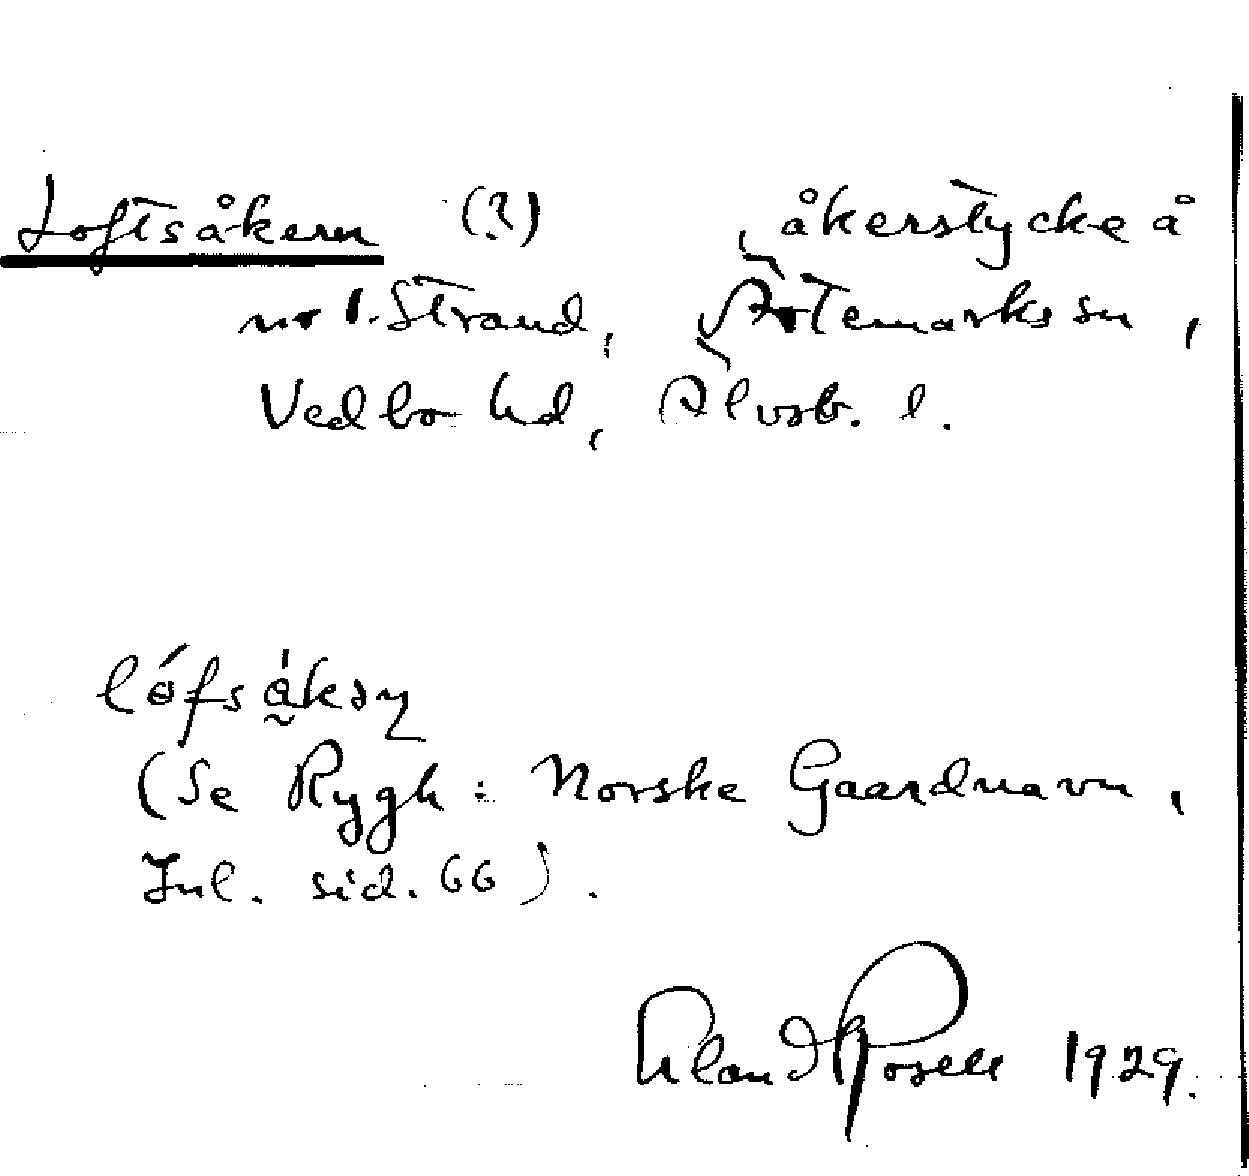 Loftsåkern (?) åkerstycke å
nr 1. Strand, Ärtemarks sn,
Vedbo hd, Älvsb. l.
lófsåkəɳ
(Se Rygh: Norske Gaardnavn,
Inl. sid. 66).
Erland Rosell 1929.